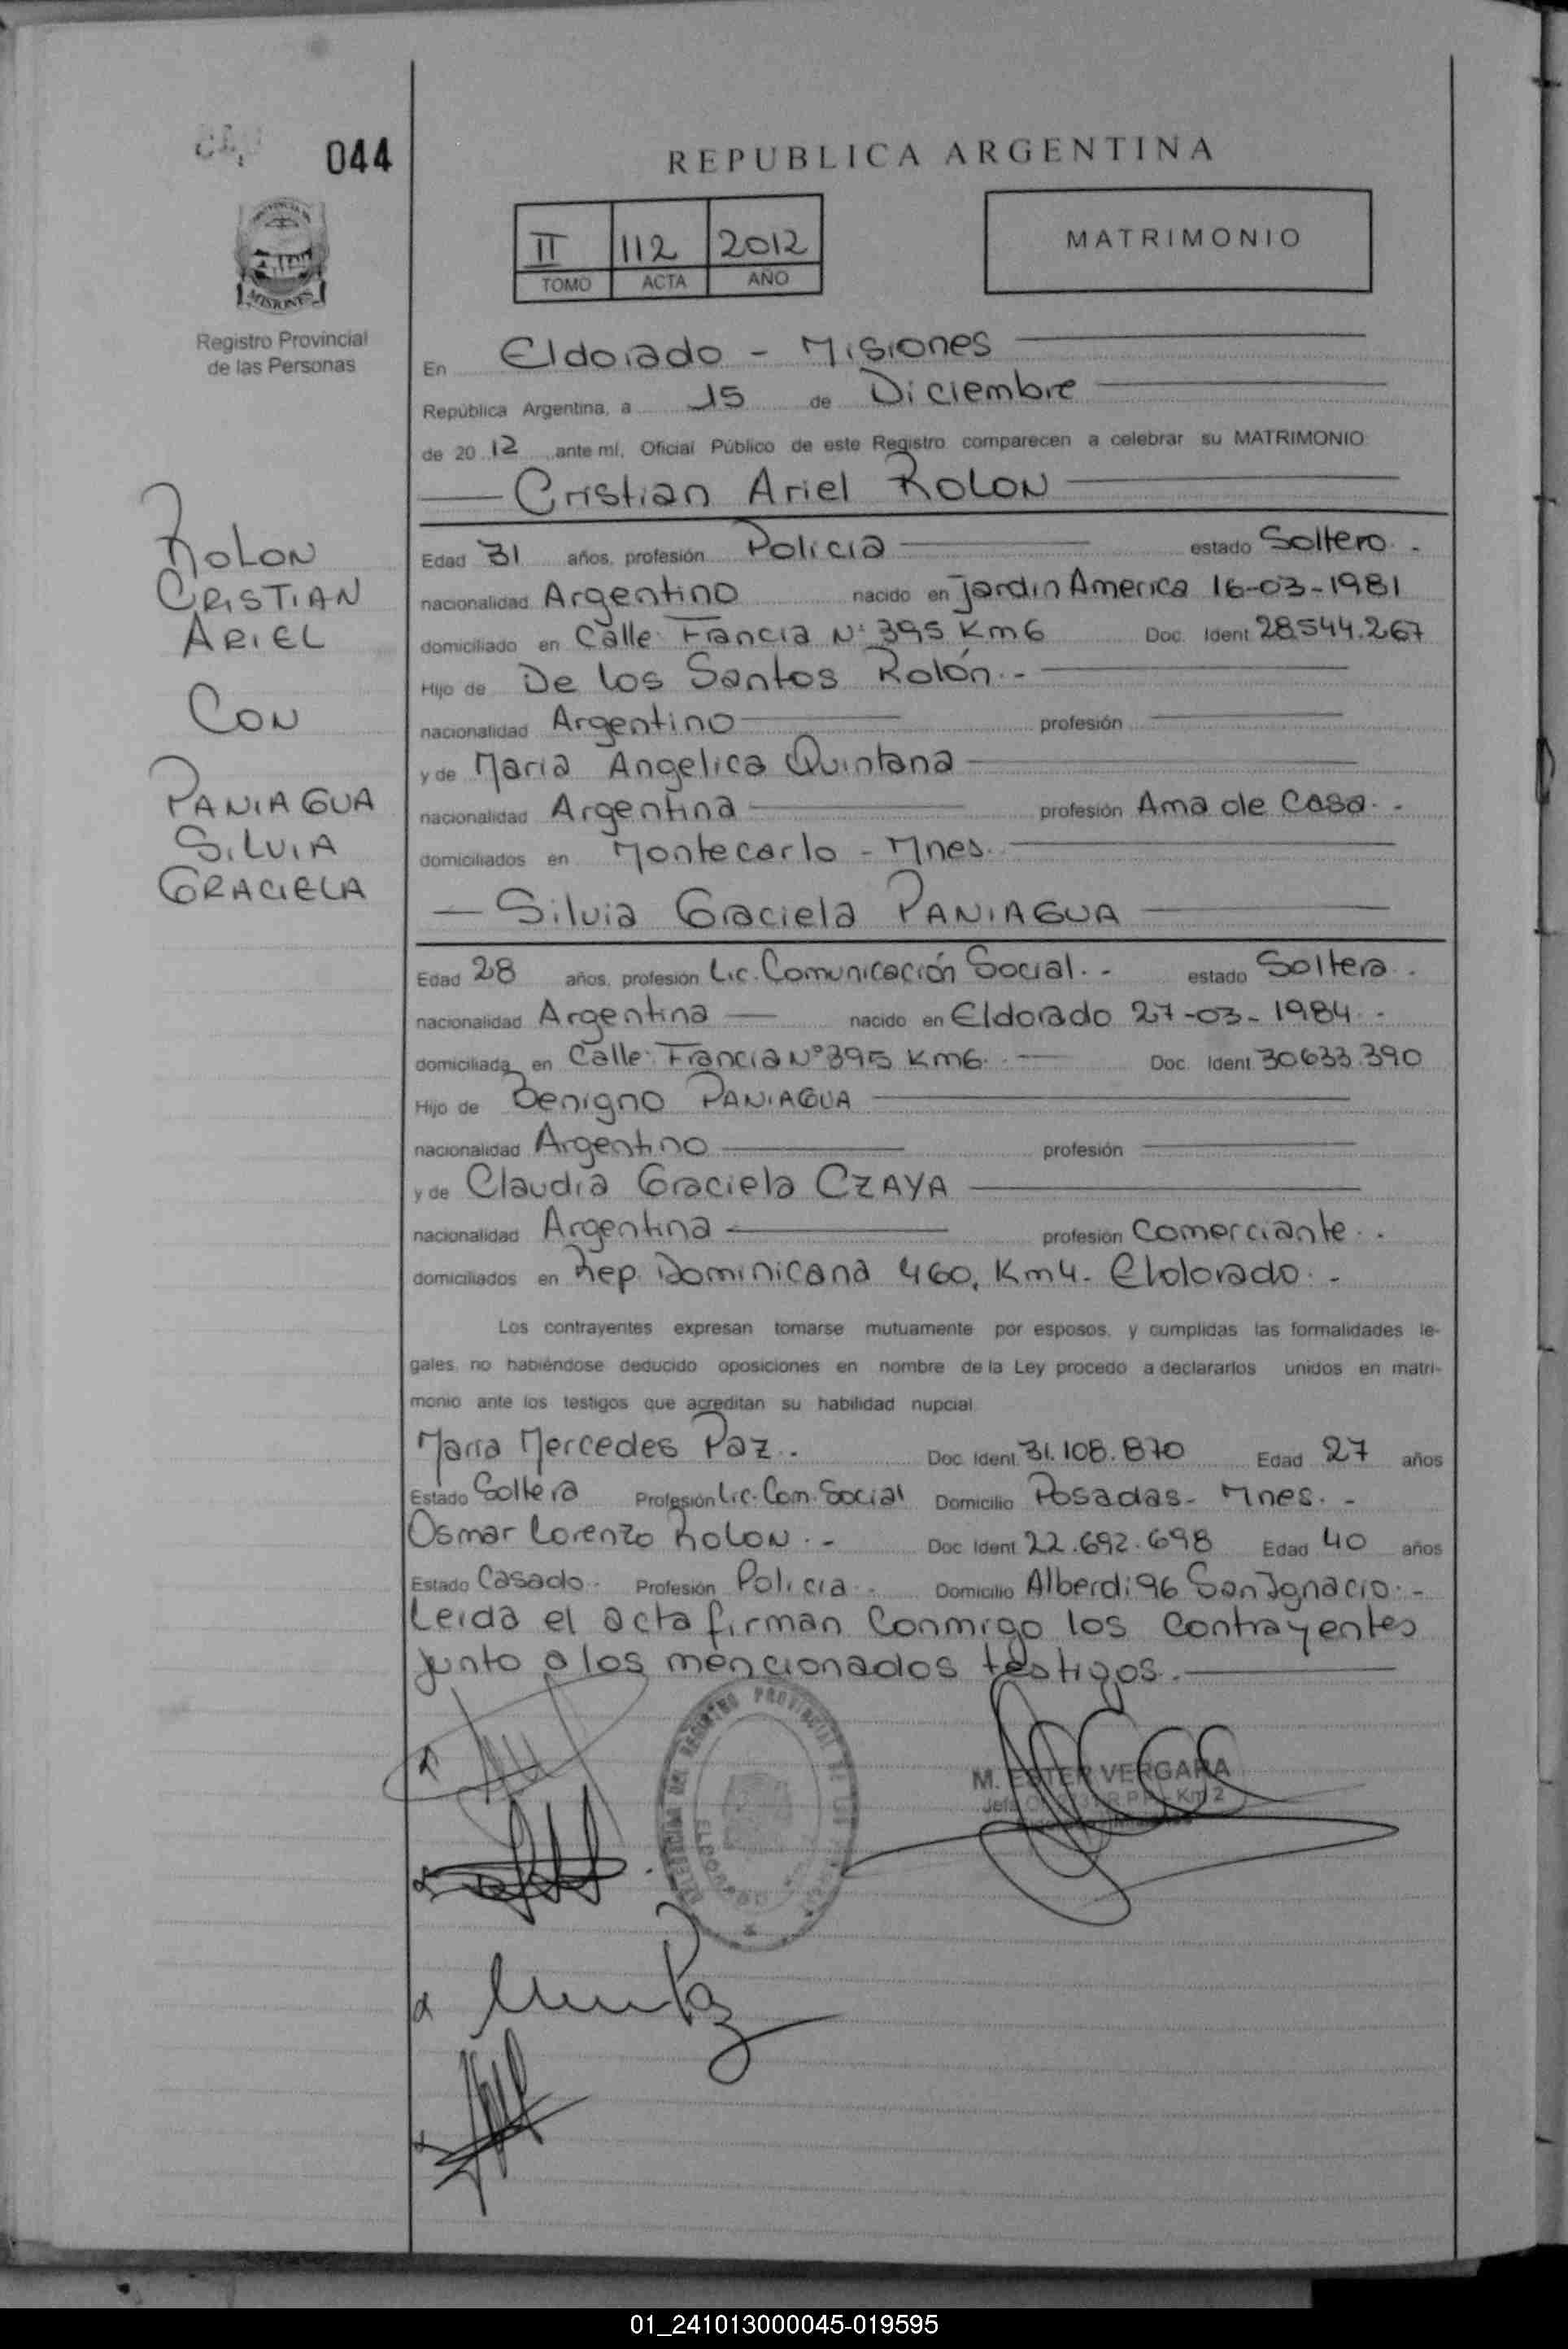 044
REPUBLICA ARGENTINA
II 112 2012
TOMO ACTA AÑO
MATRIMONIO
MISIONES
Registro Provincial
de las Personas
En Eldorado - Misiones
República Argentina, a 15 de Diciembre
de 2012 ante mí, Oficial Público de este Registro comparecen a celebrar su MATRIMONIO:
Cristian Ariel ROLON
ROLON
CRISTIAN
ARIEL
CON
PANIAGUA
SILVIA
GRACIELA
Edad 31 años, profesión Policia estado Soltero.-
nacionalidad Argentino nacido en Jardin America 16-03-1981
domiciliado en Calle: Francia N: 395 Km6 Doc. Ident 28.544.267
Hijo de De los Santos Rolón.-
nacionalidad Argentino profesión
y de Maria Angelica Quintana
nacionalidad Argentina profesión Ama de Casa.-
domiciliados en Montecarlo - Mnes.
Silvia Graciela PANIAGUA
Edad 28 años, profesión Lic. Comunicación Social.- estado Soltera.
nacionalidad Argentina nacido en Eldorado 27-03-1984.-
domiciliada en Calle: Francia N° 395 Km6. Doc. Ident. 30.633.390
Hijo de Benigno PANIAGUA
nacionalidad Argentino profesión
y de Claudia Graciela CZAYA
nacionalidad Argentina profesión Comerciante.-
domiciliados en Rep. Dominicana 460, Km4- Eldorado.-
Los contrayentes expresan tomarse mutuamente por esposos, y cumplidas las formalidades le-
gales, no habiéndose deducido oposiciones en nombre de la Ley procedo a declararlos unidos en matri-
monio ante los testigos que acreditan su habilidad nupcial.
Maria Mercedes Paz.. Doc. Ident. 31.108.870 Edad 27 años
Estado Soltera Profesión Lic. Com. Social Domicilio Posadas- Mnes.-
Osmar Lorenzo ROLON.- Doc. Ident. 22.692.698 Edad 40 años
Estado Casado- Profesión Policia- Domicilio Alberdi 96 San Ignacio.-
Leida el acta firman conmigo los contrayentes
junto a los mencionados testigos.-
DEL REGISTRO PROVINCIAL DE LAS
ELDORADO
M. ESTER VERGARA
Km 2
01_241013000045-019595